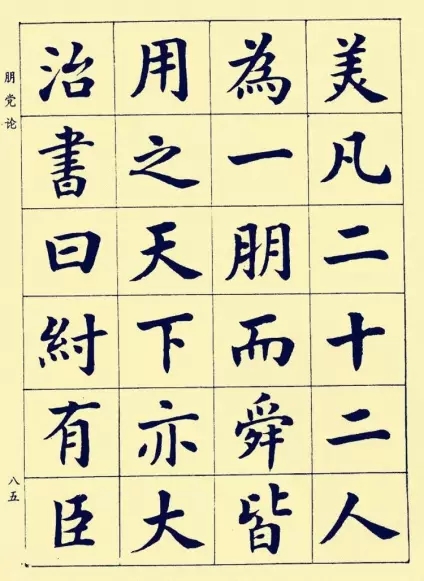 美凡二十二人
為一朋而舜皆
用之天下亦大
治書曰紂有臣
朋党论
八五